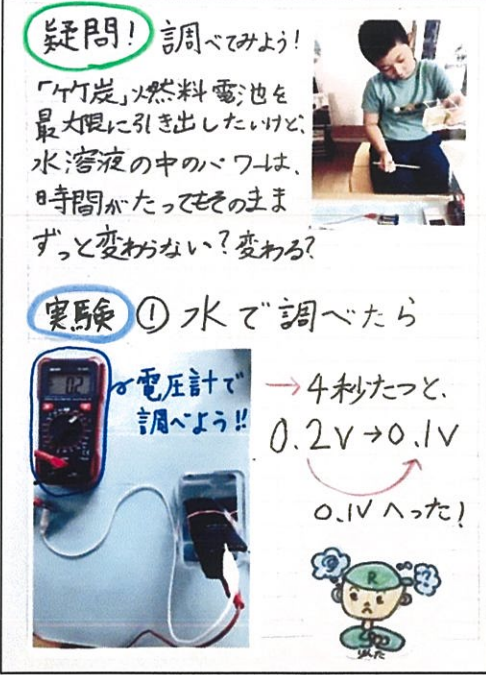 疑問! 調べてみよう!
「竹炭」燃料電池を
最大限に引き出したいけど、
水溶液の中のパワーは、
時間がたってもそのまま
ずっと変わらない?変わる?
実験 ① 水で調べたら
電圧計で
調べよう!!
→4秒たつと、
0.2V→0.1V
0.1Vへった!
R
?